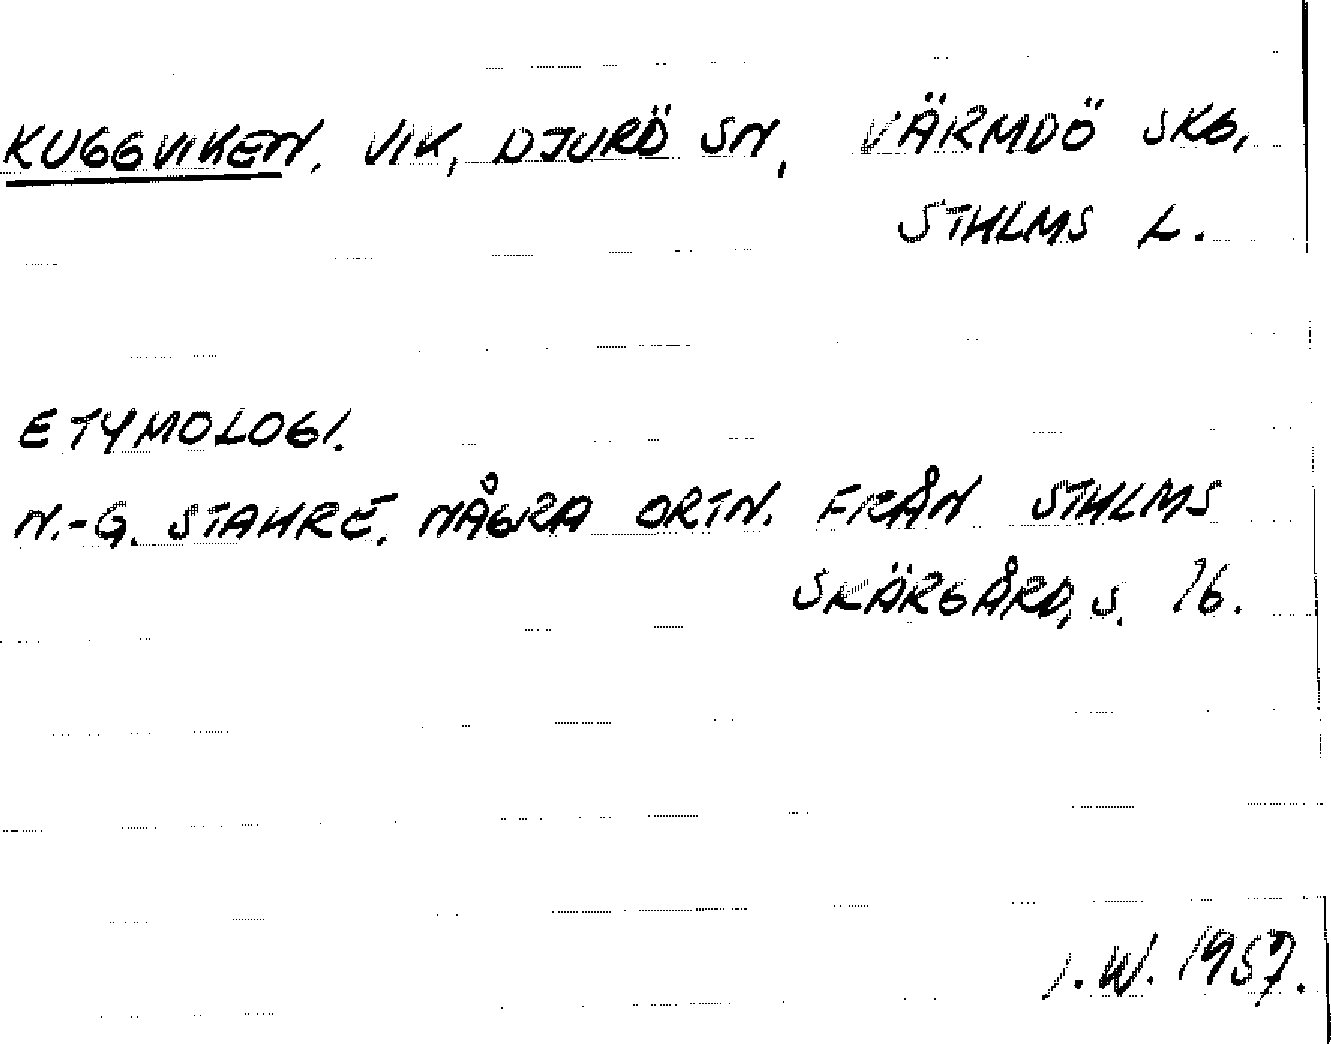 KUGGVIKEN, VIK, DJURÖ SN, VÄRMDÖ SKG,
STHLMS L.
ETYMOLOGI.
N.-G. STAHRE, NÅGRA ORTN. FRÅN STHLMS
SKÄRGÅRD, S. 76.
I.W. 1957.